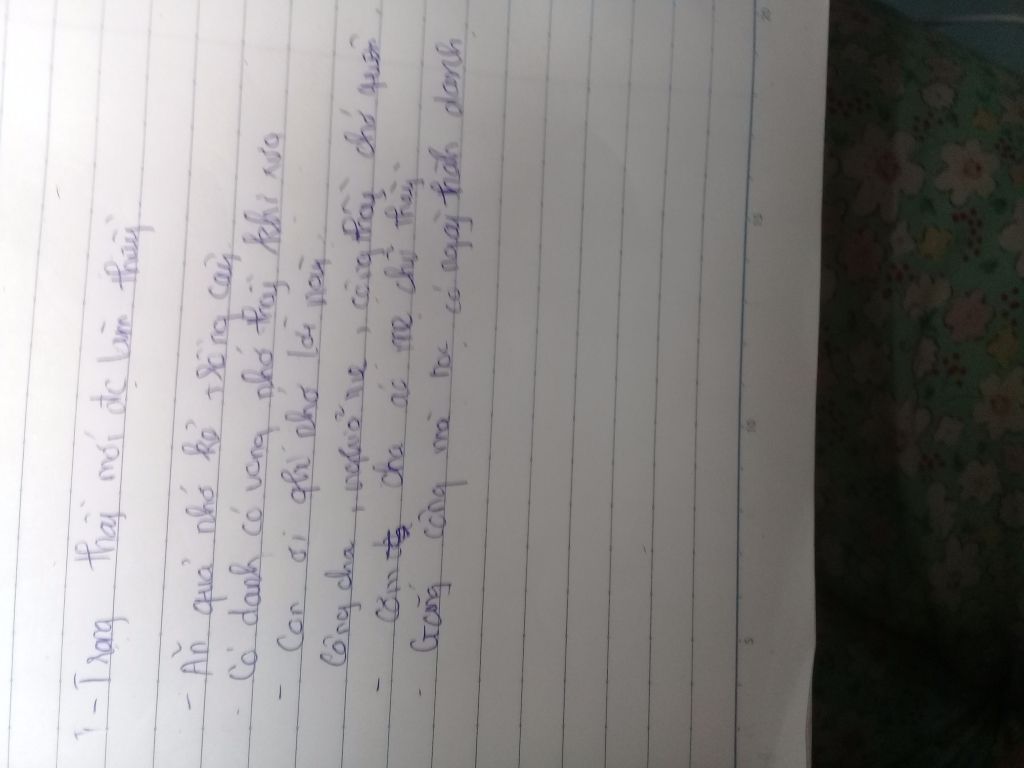 1 - Trọng thầy mới đc làm thầy
- Ăn quả nhớ kẻ trồng cây
- Có danh có vọng nhớ thầy khi xưa
- Con ơi ghi nhớ lời này
Công cha, nghĩa mẹ, công thầy chớ quên
- cơm cha áo mẹ chữ thầy
- Gắng công mà học có ngày thành danh
5
10
15
20